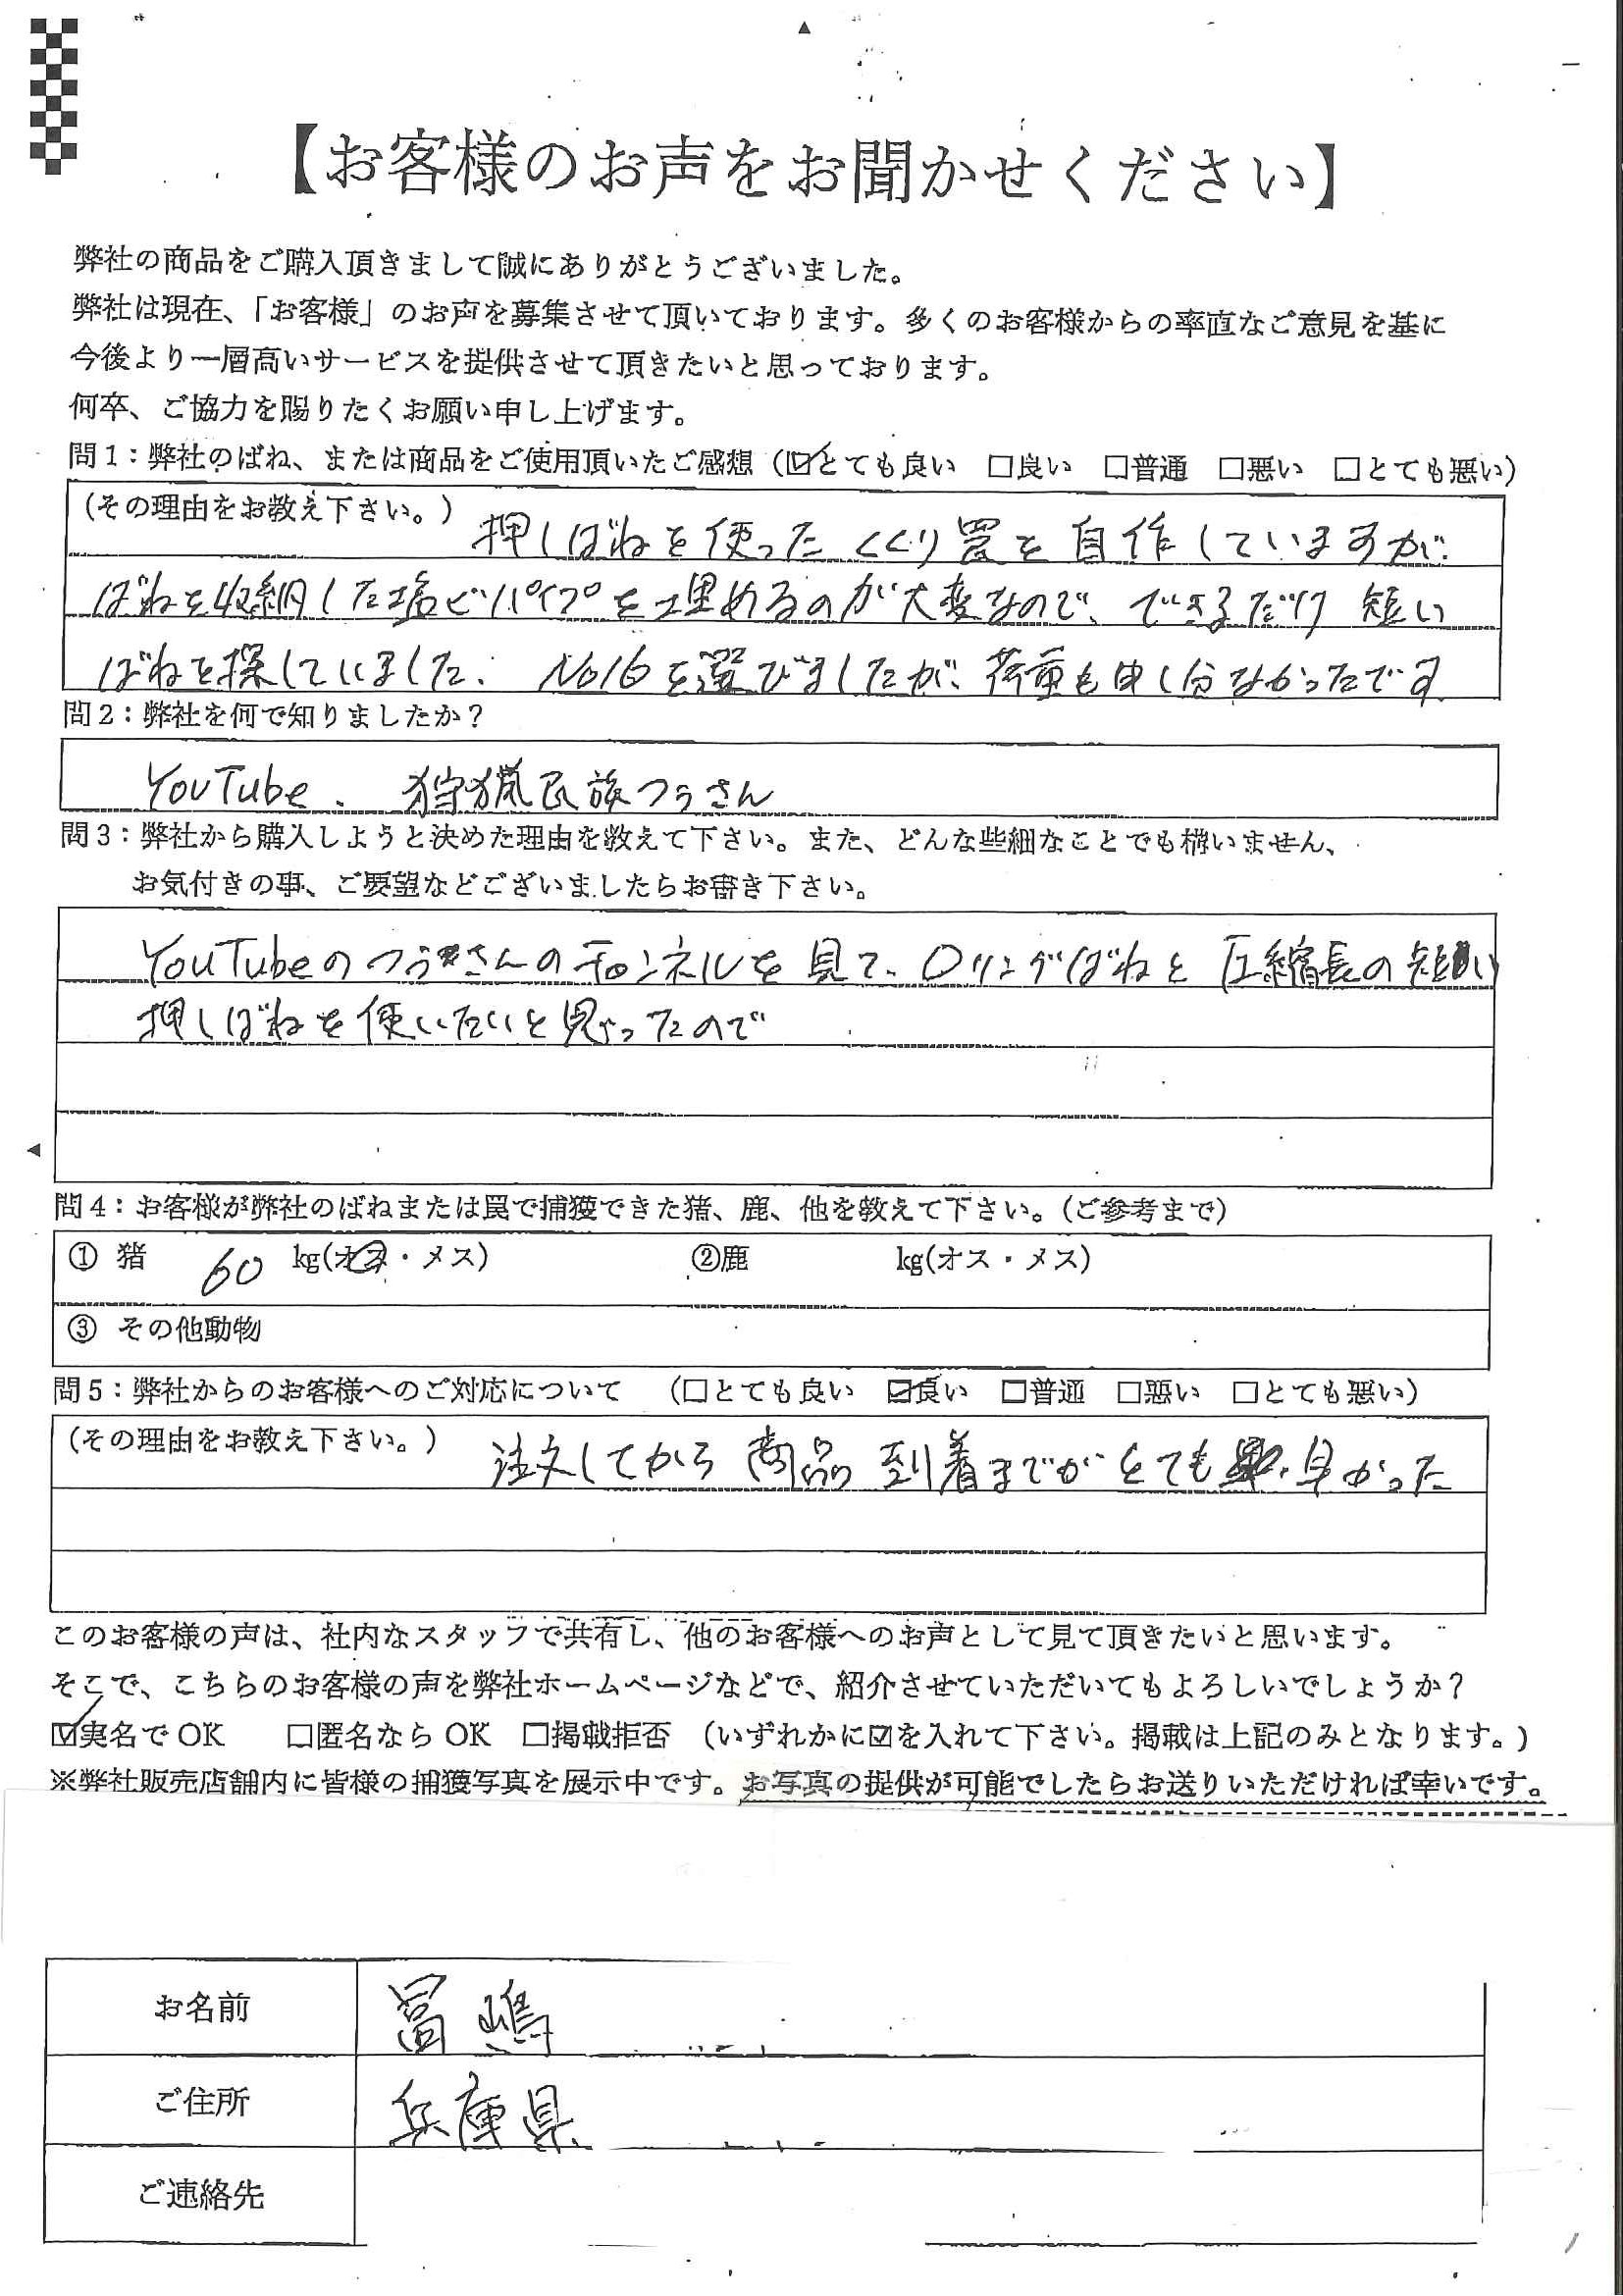 【お客様のお声をお聞かせください】
弊社の商品をご購入頂きまして誠にありがとうございました。
弊社は現在、「お客様」のお声を募集させて頂いております。多くのお客様からの率直なご意見を基に
今後より一層高いサービスを提供させて頂きたいと思っております。
何卒、ご協力を賜りたくお願い申し上げます。
問1:弊社のばね、または商品をご使用頂いたご感想（☑とても良い　□良い　□普通　□悪い　□とても悪い）
（その理由をお教え下さい。）押しばねを使ったくくり罠を自作していますが、
ばねを収納した塩ビパイプを埋めるのが大変なので、できるだけ短い
ばねを探していました。No16を選びましたが、荷重も申し分なかったです
問2:弊社を何で知りましたか？
YouTube、狩猟民族つぅさん
問3:弊社から購入しようと決めた理由を教えて下さい。また、どんな些細なことでも構いません、
お気付きの事、ご要望などございましたらお書き下さい。
YouTubeのつぅさんのチャンネルを見て、Oリングばねと圧縮長の短い
押しばねを使いたいと思ったので
問4:お客様が弊社のばねまたは罠で捕獲できた猪、鹿、他を教えて下さい。（ご参考まで）
① 猪　60　kg(オス・メス)　②鹿　kg(オス・メス)
③ その他動物
問5:弊社からのお客様へのご対応について　（□とても良い　☑良い　□普通　□悪い　□とても悪い）
（その理由をお教え下さい。）注文してから商品到着までがとても早かった
このお客様の声は、社内なスタッフで共有し、他のお客様へのお声として見て頂きたいと思います。
そこで、こちらのお客様の声を弊社ホームページなどで、紹介させていただいてもよろしいでしょうか？
☑実名でOK　□匿名ならOK　□掲載拒否　（いずれかに☑を入れて下さい。掲載は上記のみとなります。）
※弊社販売店舗内に皆様の捕獲写真を展示中です。お写真の提供が可能でしたらお送りいただければ幸いです。
お名前　冨嶋
ご住所　兵庫県
ご連絡先